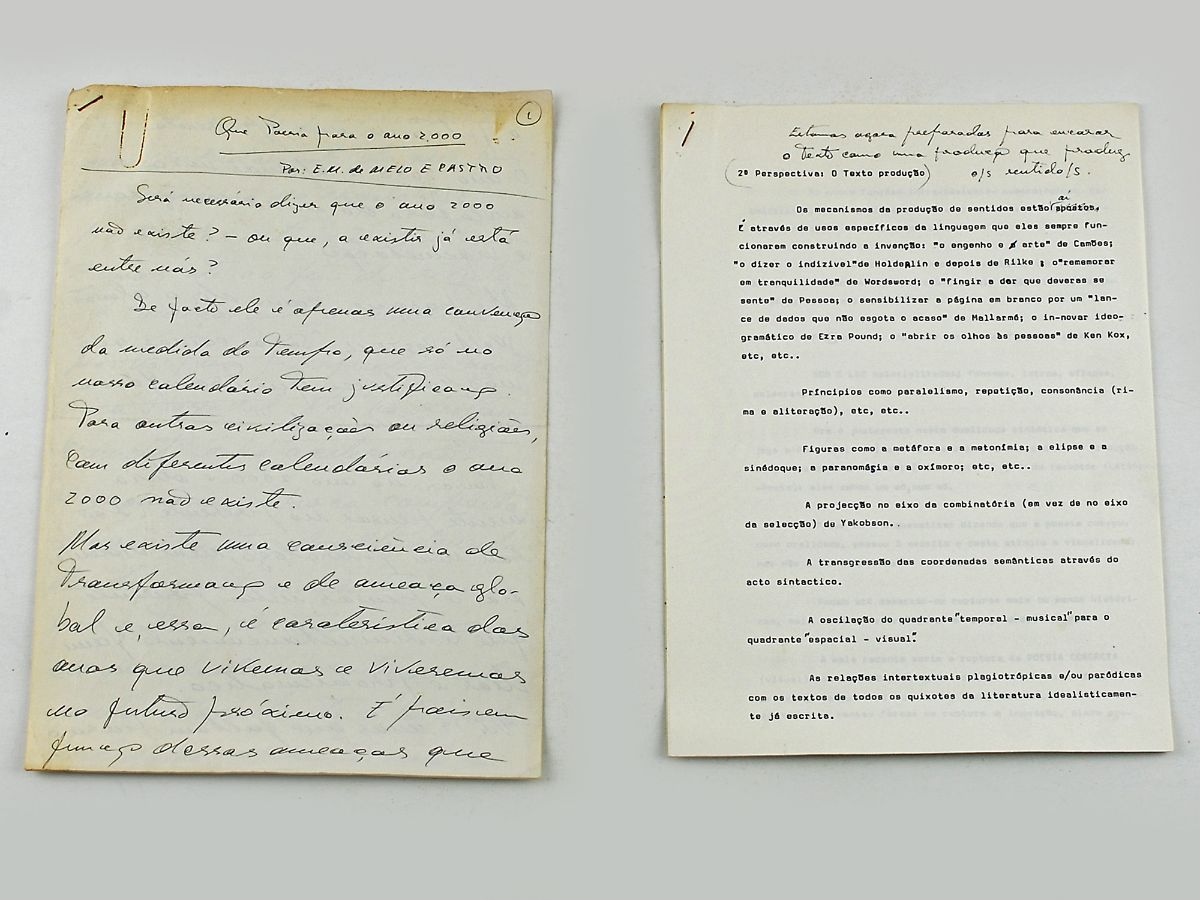 1
Que Poesia para o ano 2000
Por: E. M. de MELO E CASTRO
Será necessário dizer que o ano 2000
não existe? – ou que, a existir já está
entre nós?
De facto ele é apenas uma convenção
da medida do Tempo, que só no
nosso calendário tem justificação.
Para outras civilizações ou religiões,
com diferentes calendários o ano
2000 não existe.
Mas existe uma consciência de
Transformação e de ameaça glo-
bal e, essa, é caraterística dos
anos que vivemos e viveremos
no futuro próximo. É pois em
função dessas ameaças que
Estamos agora preparados para encarar
o Texto como uma produção que produz
o/s sentido/s.
(2ª Perspectiva: O Texto produção)
Os mecanismos da produção de sentidos estão aí
É através de usos específicos da linguagem que eles sempre fun-
cionaram construindo a invenção: "o engenho e arte" de Camões;
"o dizer o indizivel"de Holderlin e depois de Rilke ; o"rememorar
em tranquilidade" de Wordsword; o "fingir a dor que deveras se
sente" de Pessoa; o sensibilizar a página em branco por um "lan-
ce de dados que não esgota o acaso" de Mallarmé; o in-novar ideo-
gramático de Ezra Pound; o "abrir os olhos às pessoas" de Ken Kox,
etc, etc..
Príncipios como paralelismo, repetição, consonância (ri-
ma e aliteração), etc, etc..
Figuras como a metáfora e a metonímia; a elipse e a
sinédoque; a paranomágia e a oxímoro; etc, etc..
A projecção no eixo da combinatória (em vez de no eixo
da selecção) de Yakobson..
A transgressão das coordenadas semânticas através do
acto sintactico.
A oscilação do quadrante "temporal - musical" para o
quadrante "espacial - visual".
As relações intertextuais plagiotrópicas e/ou paródicas
com os textos de todos os quixotes da literatura idealisticamen-
te já escrita.